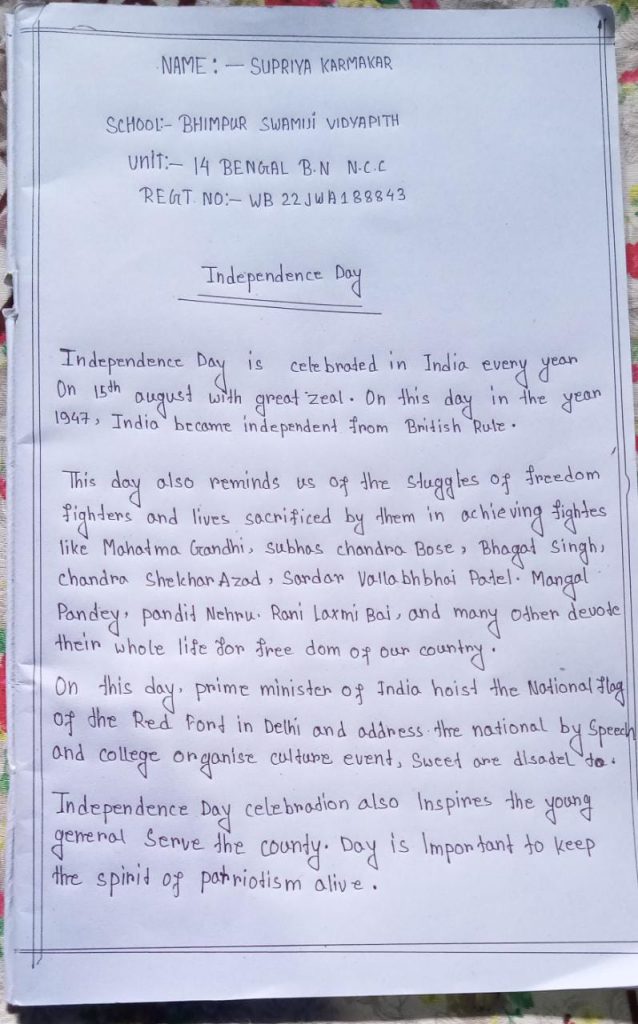 NAME: — SUPRIYA KARMAKAR
SCHOOL:- BHIMPUR SWAMIJI VIDYAPITH
Unit:- 14 BENGAL B.N N.C.C
REGT NO:- WB 22JWA188843
Independence Day
Independence Day is celebrated in India every year
On 15th august with great zeal. On this day in the year
1947, India became independent from British Rule.
This day also reminds us of the stuggles of freedom
fighters and lives sacrificed by them in achieving fightes
like Mahatma Gandhi, subhas chandra Bose, Bhagat singh,
chandra Shekhar Azad, Sardar Vallabhbhai Patel. Mangal
Pandey, pandit Nehru. Rani Laxmi Bai, and many other devote
their whole life for free dom of our country.
On this day, prime minister of India hoist the National flag
of the Red Font in Delhi and address the national by Speech
and college organise culture event, Sweet are disadel to.
Independence Day celebration also Inspires the young
general Serve the county. Day is Important to keep
the spirit of patriotism alive.